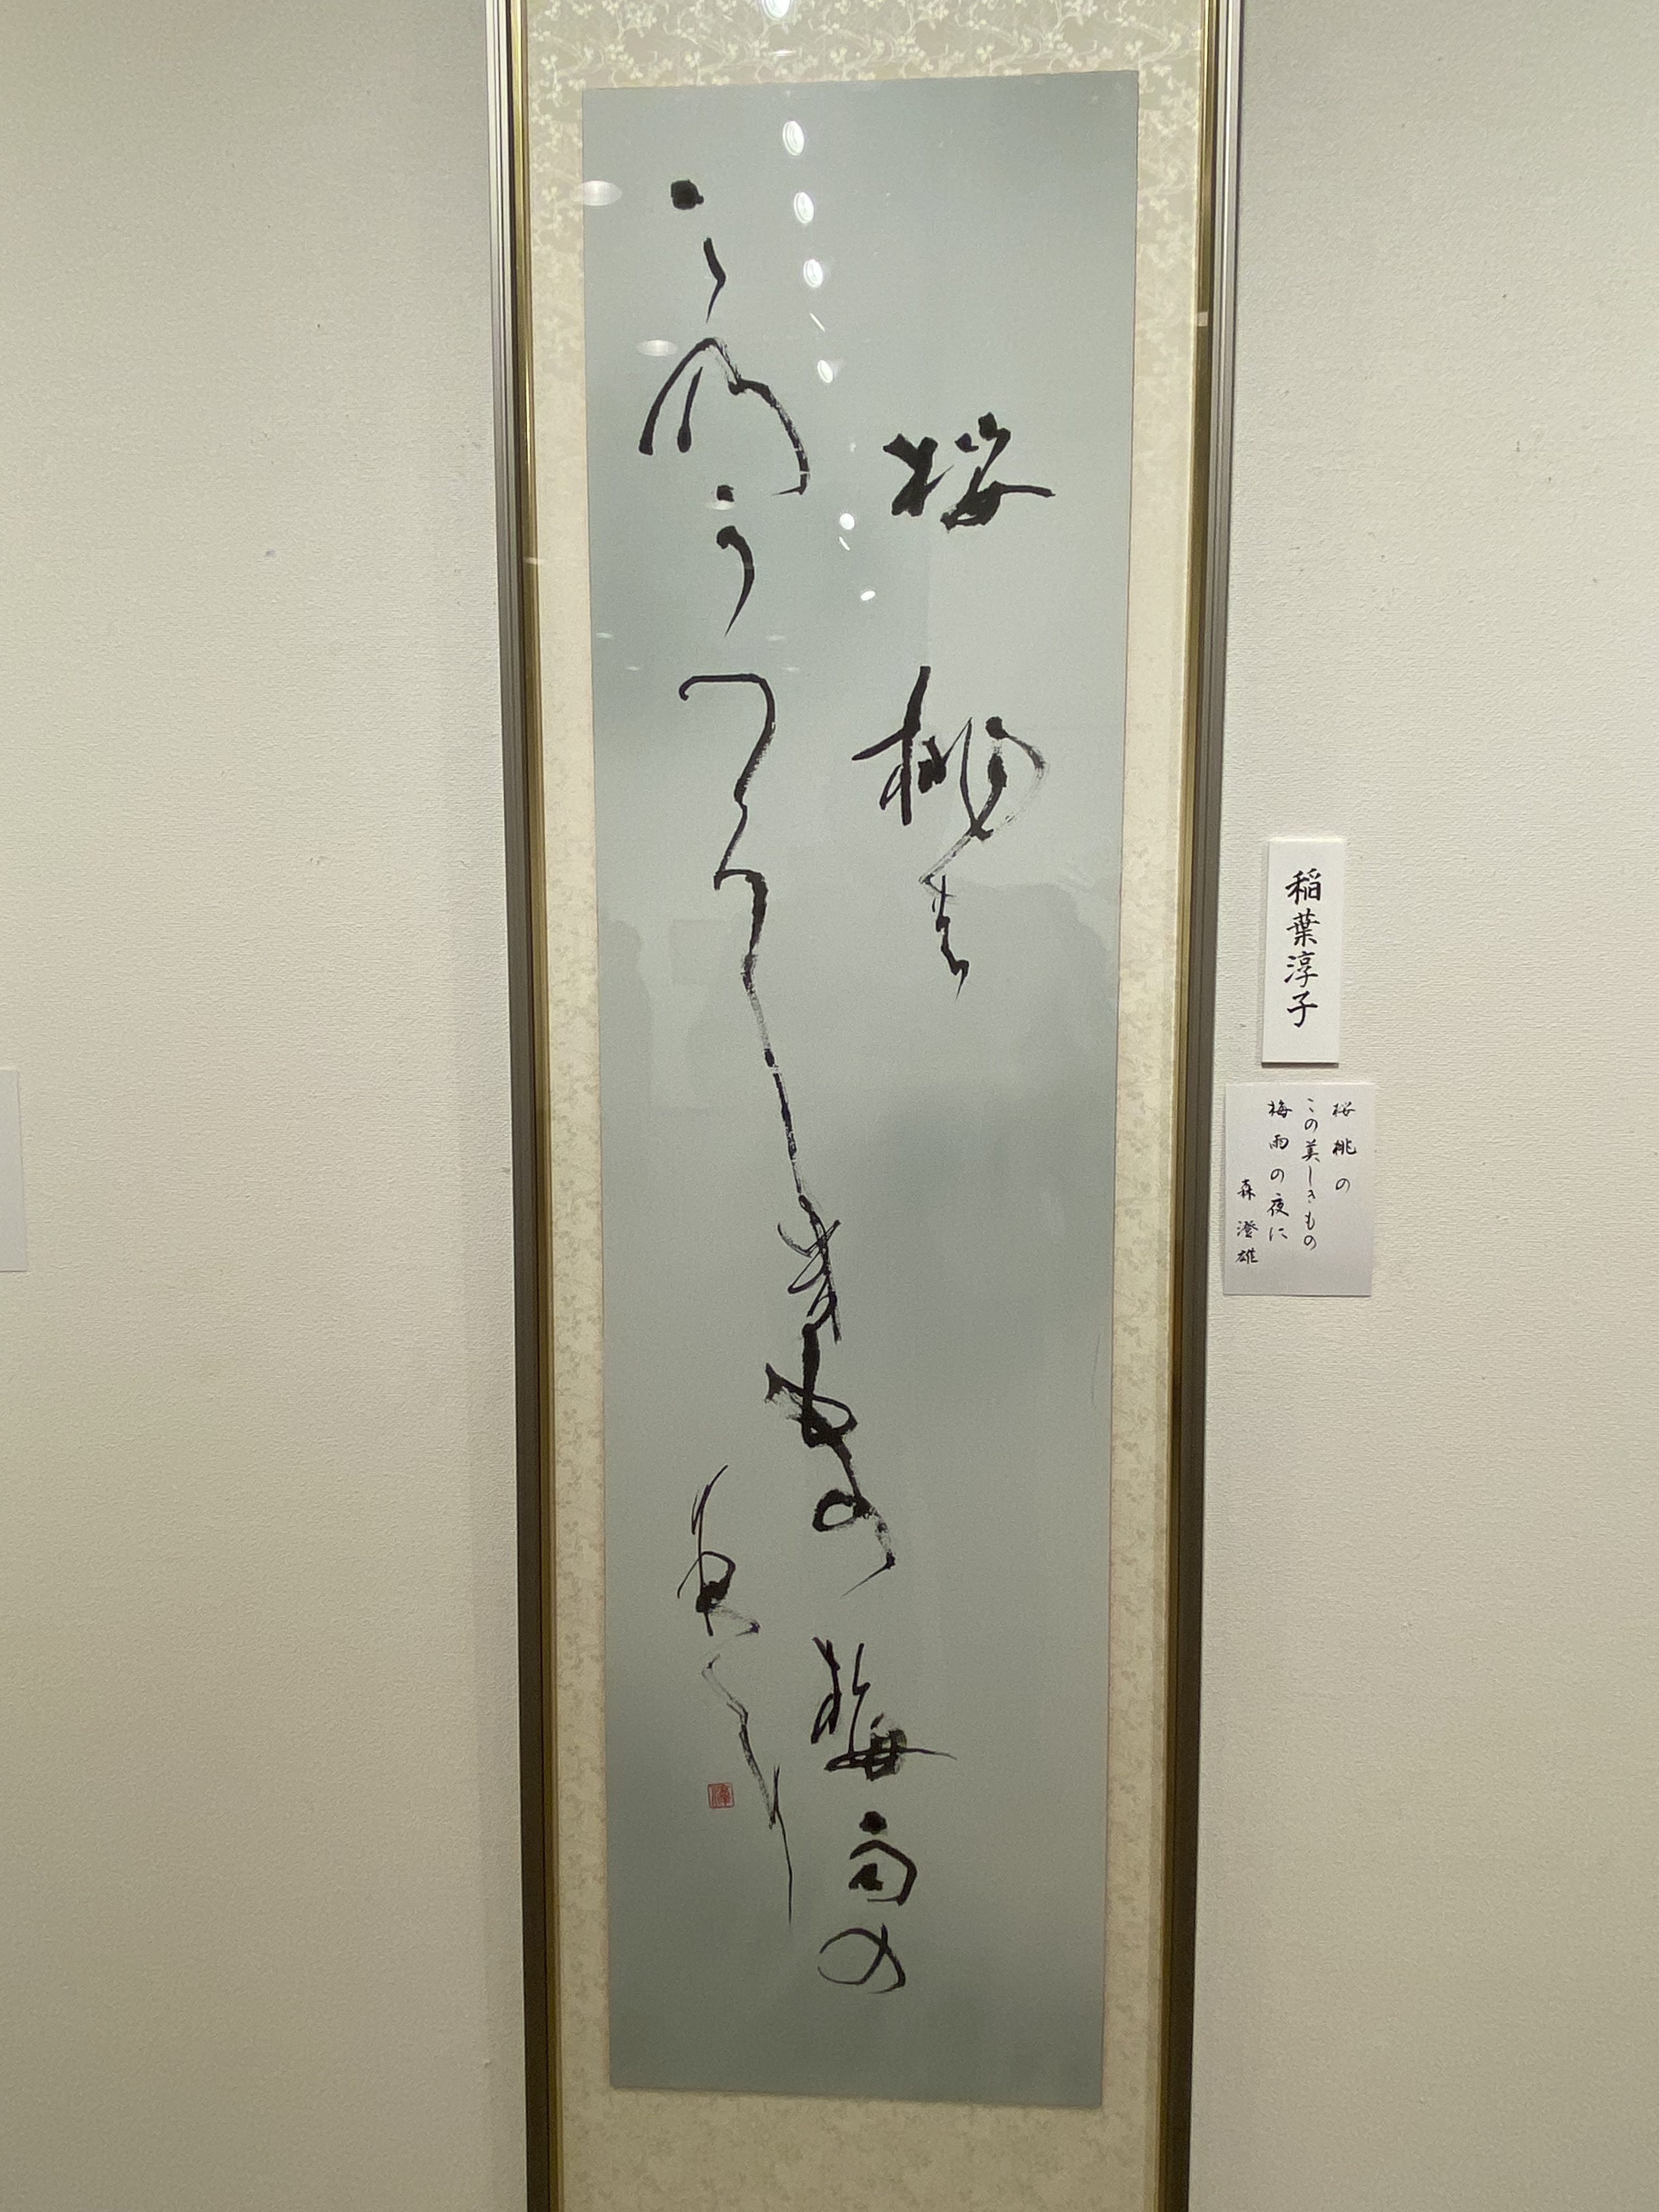 桜桃の
このうつくしきもの梅雨の
夜に
稲葉淳子
桜桃の
この美しきもの
梅雨の夜に
森澄雄